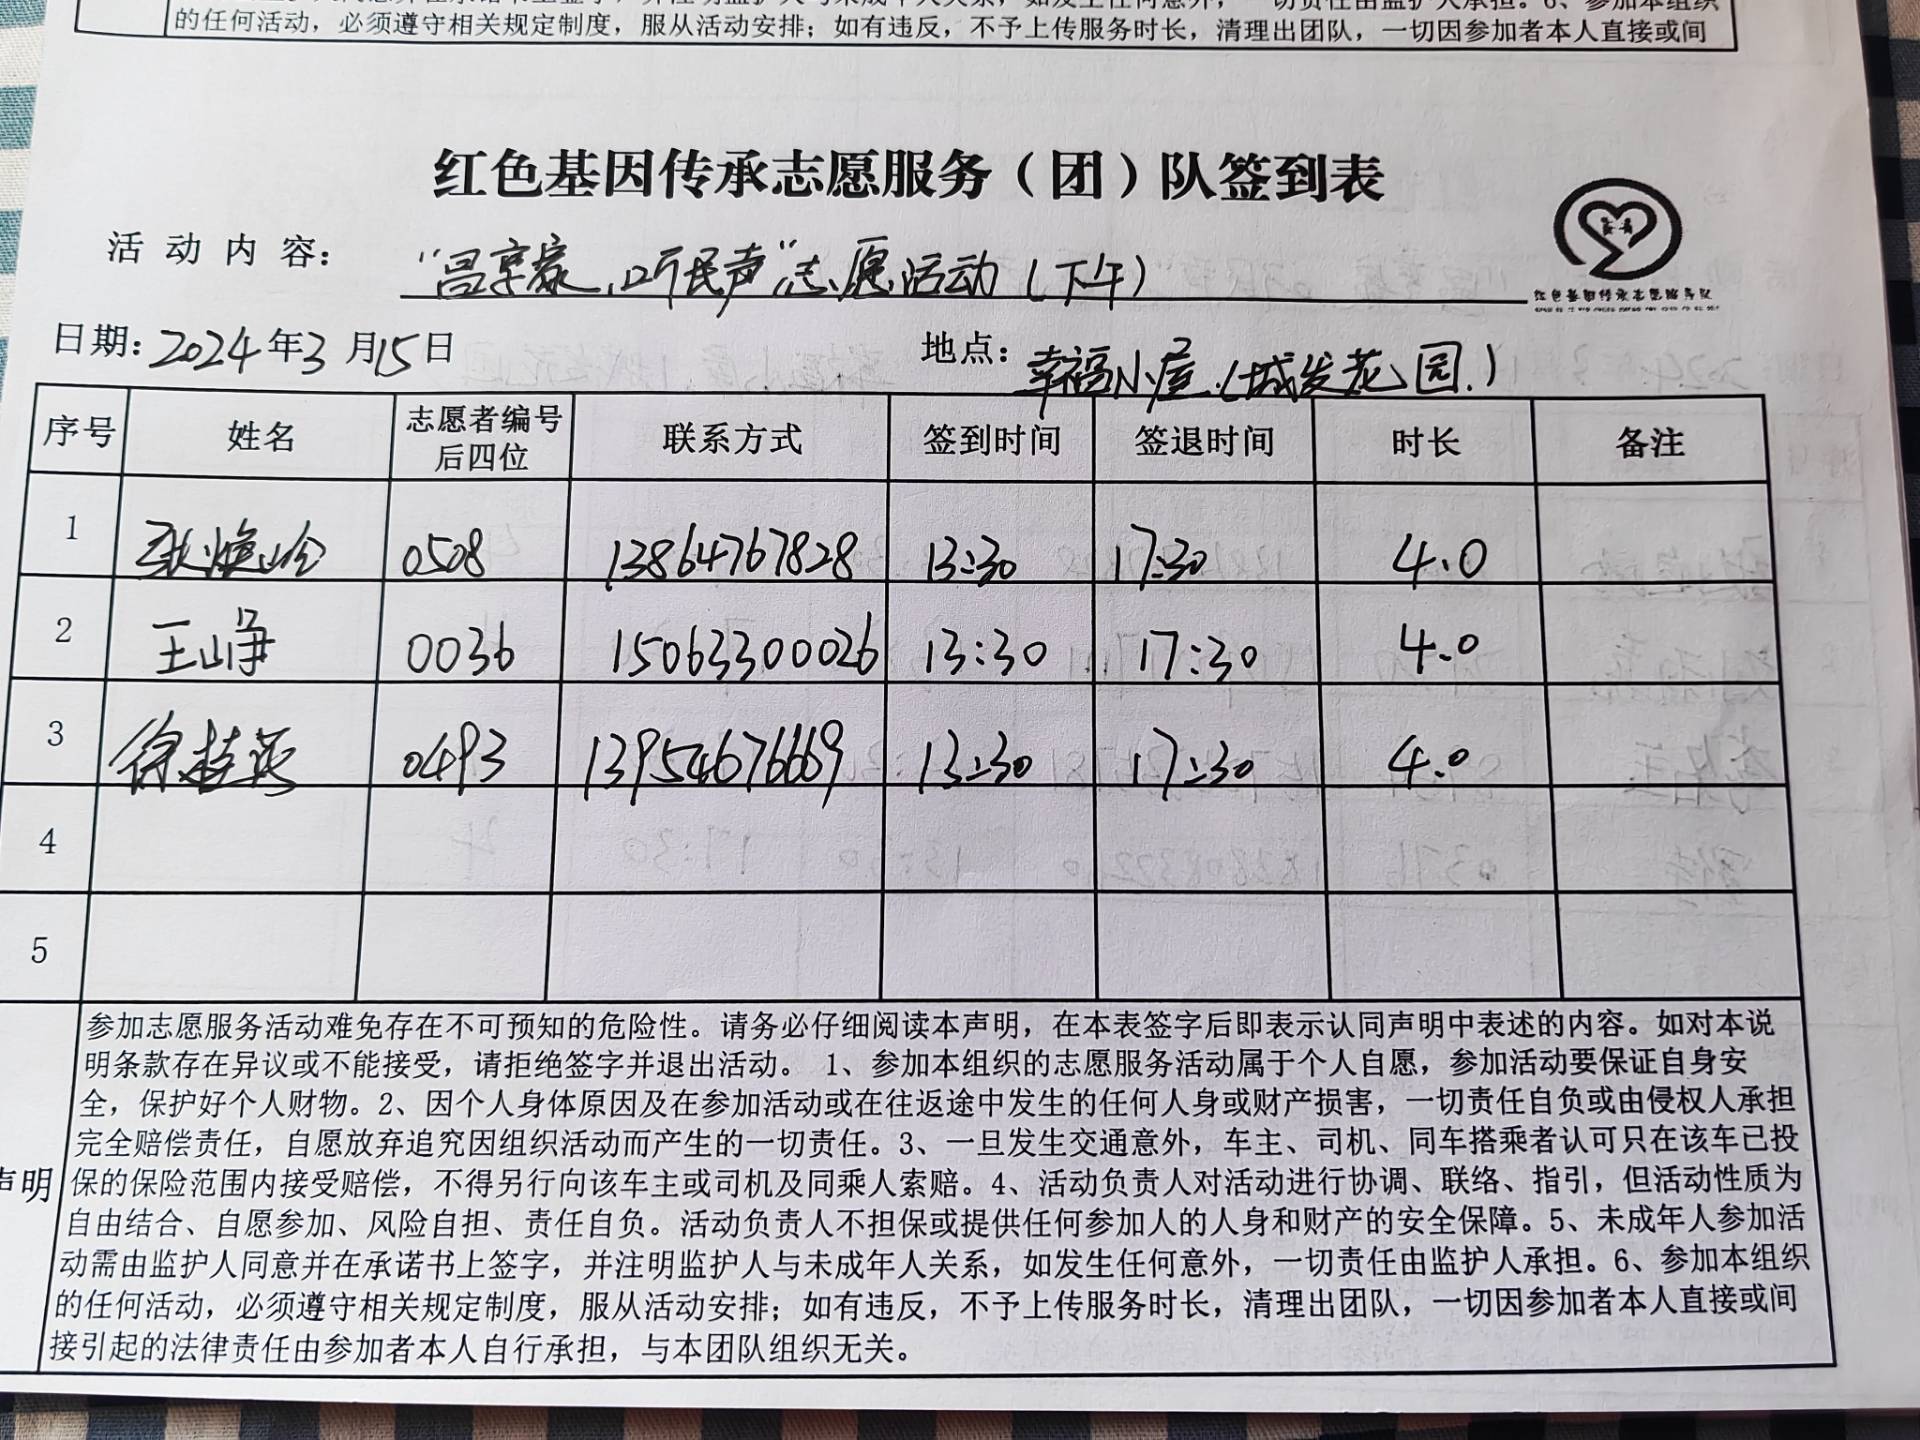 的任何活动，必须遵守相关规定制度，服从活动安排；如有违反，不予上传服务时长，清理出团队，一切因参加者本人直接或间
红色基因传承志愿服务（团）队签到表
活动内容： “吕享家，听民声”志愿活动（下午）
红色基因传承志愿服务队
日期：2024年3月15日 地点：幸福小屋（城发花园）
序号 姓名 志愿者编号后四位 联系方式 签到时间 签退时间 时长 备注
1 张焕岭 0508 13864767828 13:30 17:30 4.0
2 王峥 0036 15063300026 13:30 17:30 4.0
3 徐桂英 0493 13954676669 13:30 17:30 4.0
4
5
声明
参加志愿服务活动难免存在不可预知的危险性。请务必仔细阅读本声明，在本表签字后即表示认同声明中表述的内容。如对本说
明条款存在异议或不能接受，请拒绝签字并退出活动。 1、参加本组织的志愿服务活动属于个人自愿，参加活动要保证自身安
全，保护好个人财物。2、因个人身体原因及在参加活动或在往返途中发生的任何人身或财产损害，一切责任自负或由侵权人承担
完全赔偿责任，自愿放弃追究因组织活动而产生的一切责任。3、一旦发生交通意外，车主、司机、同车搭乘者认可只在该车已投
保的保险范围内接受赔偿，不得另行向该车主或司机及同乘人索赔。4、活动负责人对活动进行协调、联络、指引，但活动性质为
自由结合、自愿参加、风险自担、责任自负。活动负责人不担保或提供任何参加人的人身和财产的安全保障。5、未成年人参加活
动需由监护人同意并在承诺书上签字，并注明监护人与未成年人关系，如发生任何意外，一切责任由监护人承担。6、参加本组织
的任何活动，必须遵守相关规定制度，服从活动安排；如有违反，不予上传服务时长，清理出团队，一切因参加者本人直接或间
接引起的法律责任由参加者本人自行承担，与本团队组织无关。